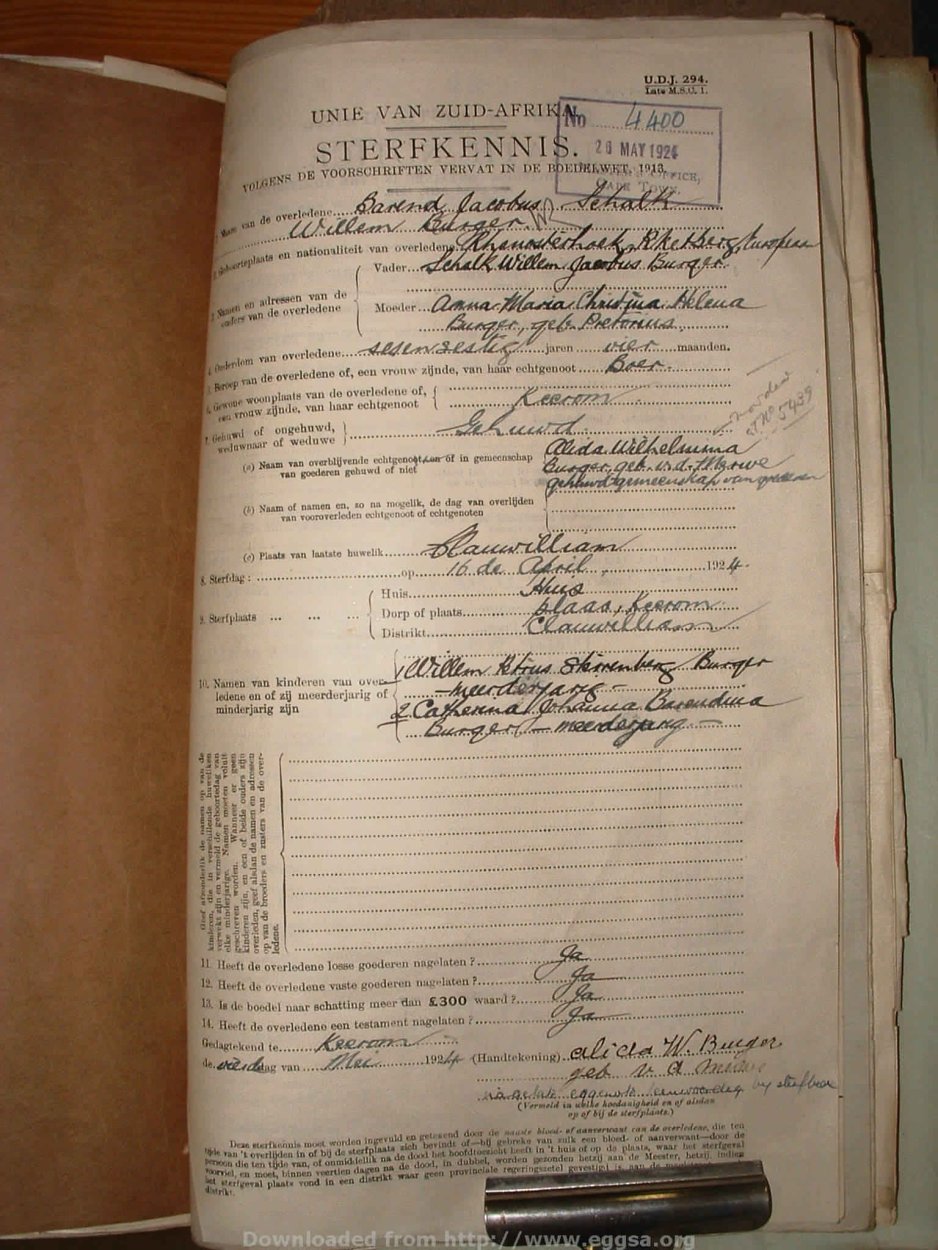 U.D.J. 294.
Late M.S.C. 1.
UNIE VAN ZUID-AFRIKA.
No 4400
STERFKENNIS.
26 MAY 1924
VOLGENS DE VOORSCHRIFTEN VERVAT IN DE BOEDELWET, 1913.
OFFICE,
CAPE TOWN.
1. Naam van de overledene Barend Jacobus Schalk
Willem Burger
2. Geboorteplaats en nationaliteit van overledene Rhenosterhoek, Piketberg, European
3. Namen en adressen van de ouders van de overledene
Vader Schalk Willem Jacobus Burger
Moeder Anna Maria Christina Helena
Burger, geb. Pretorius
4. Ouderdom van overledene sesen sestig jaren vier maanden.
5. Beroep van de overledene of, een vrouw zijnde, van haar echtgenoot Boer
6. Gewone woonplaats van de overledene of,
een vrouw zijnde, van haar echtgenoot Keerom
7. Gehuwd of ongehuwd,
weduwnaar of weduwe Gehuwd
No 5439
(a) Naam van overblijvende echtgenoot, en of in gemeenschap
van goederen gehuwd of niet
Alida Wilhelmina
Burger, geb. v.d. Merwe
gehuwd gemeenskap van goederen
(b) Naam of namen en, zo na mogelik, de dag van overlijden
van vooroverleden echtgenoot of echtgenoten
(c) Plaats van laatste huwelik Clanwilliam
8. Sterfdag: op 16 de April 1924
9. Sterfplaats
Huis Huis
Dorp of plaats plaas, Keerom
Distrikt Clanwilliam
10. Namen van kinderen van overledene en of zij meerderjarig of
minderjarig zijn
1 Willem Petrus Sterrenberg Burger
- meerderjarig -
2 Catherina Johanna Barendina
Burger - meerderjarig -
Geef afzonderlik de namen op van de
kinderen, die in verschillende huweliken
verwekt zijn en vermeld de geboortedag van
elke minderjarige. Namen moeten voluit
geschreven worden. Wanneer er geen
kinderen zijn, en een of beide ouders zijn
overleden, geef alsdan de namen en adressen
op van de broeders en zusters van de overledene.
11. Heeft de overledene losse goederen nagelaten? Ja
12. Heeft de overledene vaste goederen nagelaten? Ja
13. Is de boedel naar schatting meer dan £300 waard? Ja
14. Heeft de overledene een testament nagelaten? Ja
Gedagtekend te Keerom
de vierde dag van Mei 1924 (Handtekening) Alida W. Burger
geb v d Merwe
(Vermeld in welke hoedanigheid en of alsdan
op of bij de sterfplaats.)
Deze sterfkennis moet worden ingevuld en getekend door de naaste bloed- of aanverwant van de overledene, die ten
tijde van 't overlijden in of bij de sterfplaats zich bevindt of—bij gebreke van zulk een bloed- of aanverwant—door de
persoon die ten tijde van, of onmiddellik na de dood het hoofdtoezicht heeft in 't huis of op de plaats, waar het sterfgeval
voorviel, en moet, binnen veertien dagen na de dood, in dubbel, worden gezonden hetzij aan de Meester, hetzij, indien
het sterfgeval plaats vond in een distrikt waar geen provinciale regeringszetel gevestigd is, aan de
distrikt.
Downloaded from http://www.eggsa.org